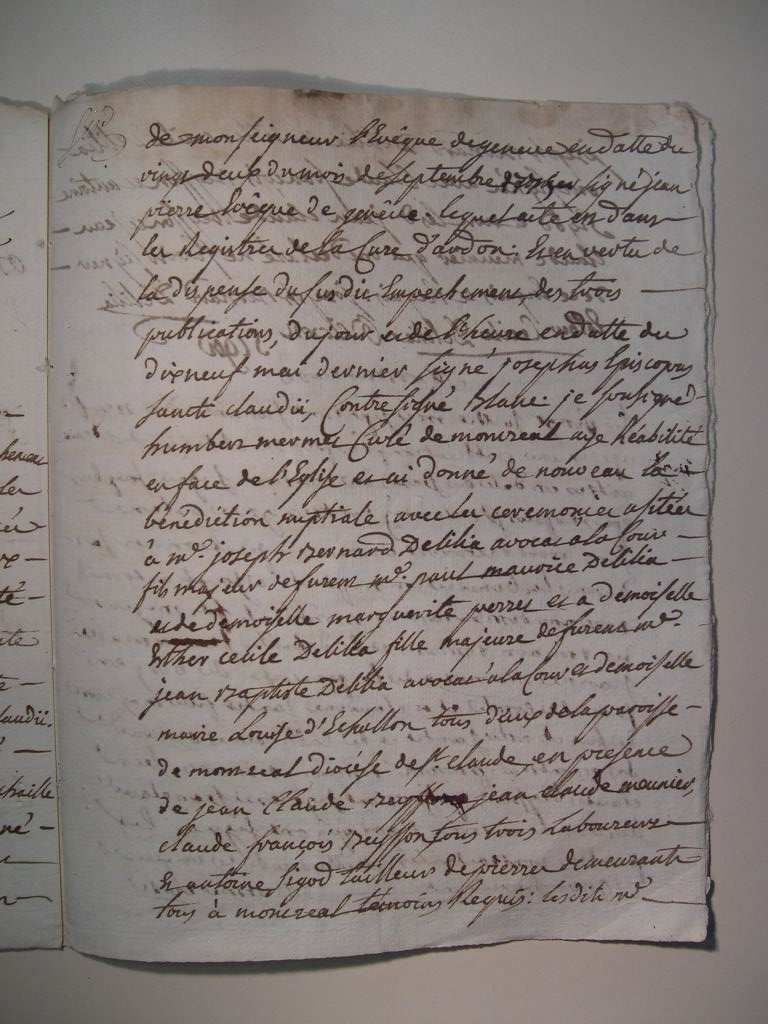 de monseigneur l'Evêque de geneve en datte du
vingt deux du mois de septembre signé jean
pierre Evêque de genêve. lequel a été en dans
les Registres de la Cure d'ardon: Et en vertu de
la dispense du susdit Empechement, des trois
publications, du jour et de l'heure en datte du
dixneuf mai dernier signé josephus Episcopus
sancti claudii, Contresigné Blanc. je sousigné
humbert mermet Curé de montréal ai Réabilité
en face de l'Eglise et ai donné de nouveau la
bénédiction nuptiale avec les ceremonies usitées
à mr. joseph Bernard Delilia avocat à la Cour
fils majeur de furent mr. paul maurice Delilia
et de demoiselle marguerite perret et a demoiselle
Esther cecile Delilia fille majeure de furent mr.
jean Baptiste Delilia avocat à la Cour et demoiselle
marie Louise d'Echallon tous deux de la paroisse
de montreal diocése de st. claude, en presence
de jean Claude jean claude meunier,
claude françois Reyffon tous trois laboureurs
Et antoine sigod tailleur de pierre demeurants
tous à montreal témoins Requis: lesdits mr